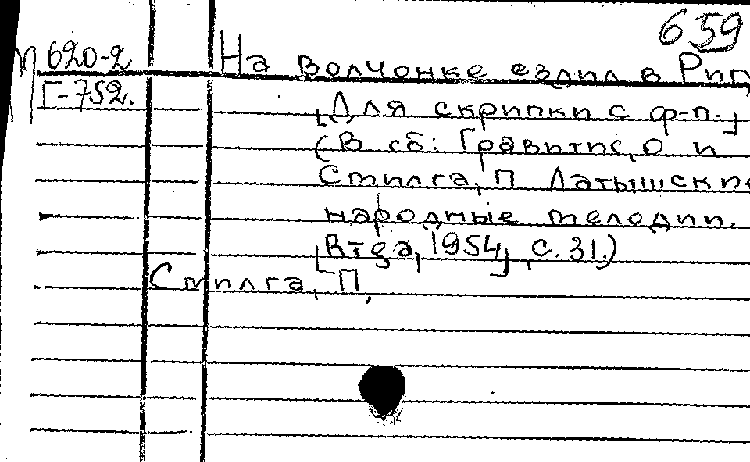 659
П 620-2
Г-752.
На волчонке ездил в Риг
[Для скрипки с ф-п.]
(В сб: Гравитис, О и
Стилга, П Латышские
народные мелодии.
[Рига, 1954], с. 31.)
Стилга, П,